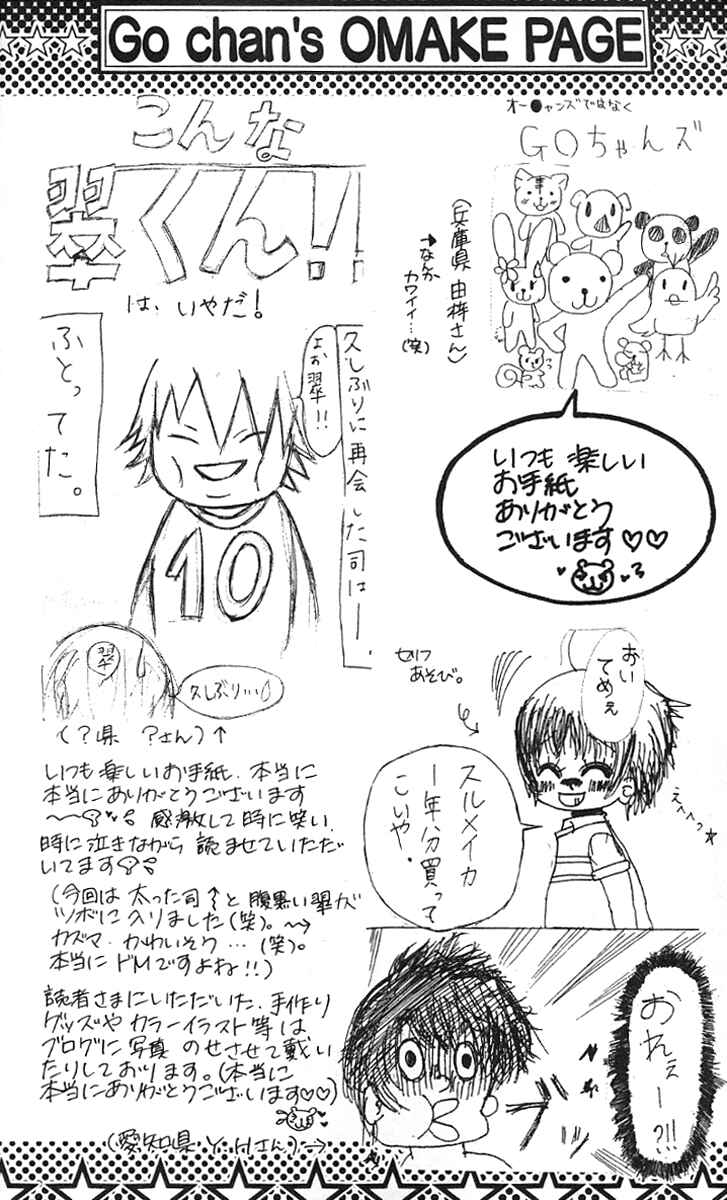 Go chan's OMAKE PAGE
オー●ャンズではなく
GOちゃんズ
(兵庫県 由梓さん)
→なんか
カワイイ…
(笑)
いつも楽しい
お手紙
ありがとう
ございます♡♡
こんな
翠くん!!
は、いやだ!
久しぶりに再会した司はー、
よお翠!!
ふとってた。
10
翠
久しぶり…
(?県 ?さん)↑
セリフ
あそび。
おい
てめぇ
えへへっ☆
スルメイカ
1年分買って
こいや。
おれぇー?!!
ブッ
いつも楽しいお手紙、本当に
本当にありがとうございます
〜〜 感激して時に笑い、
時に泣きながら 読ませていただ
いてます
(今回は 太った司↑と腹黒い翠が
ツボに入りました(笑)。〜→
カズマ、かわいそう…(笑)。
本当にドMですよね!!)
読者さまにいただいた、手作り
グッズや カラーイラスト等は
ブログに写真 のせさせて戴い
たりしております。(本当に
本当にありがとうございます♡♡)
(愛知県 Y.Hさん)→